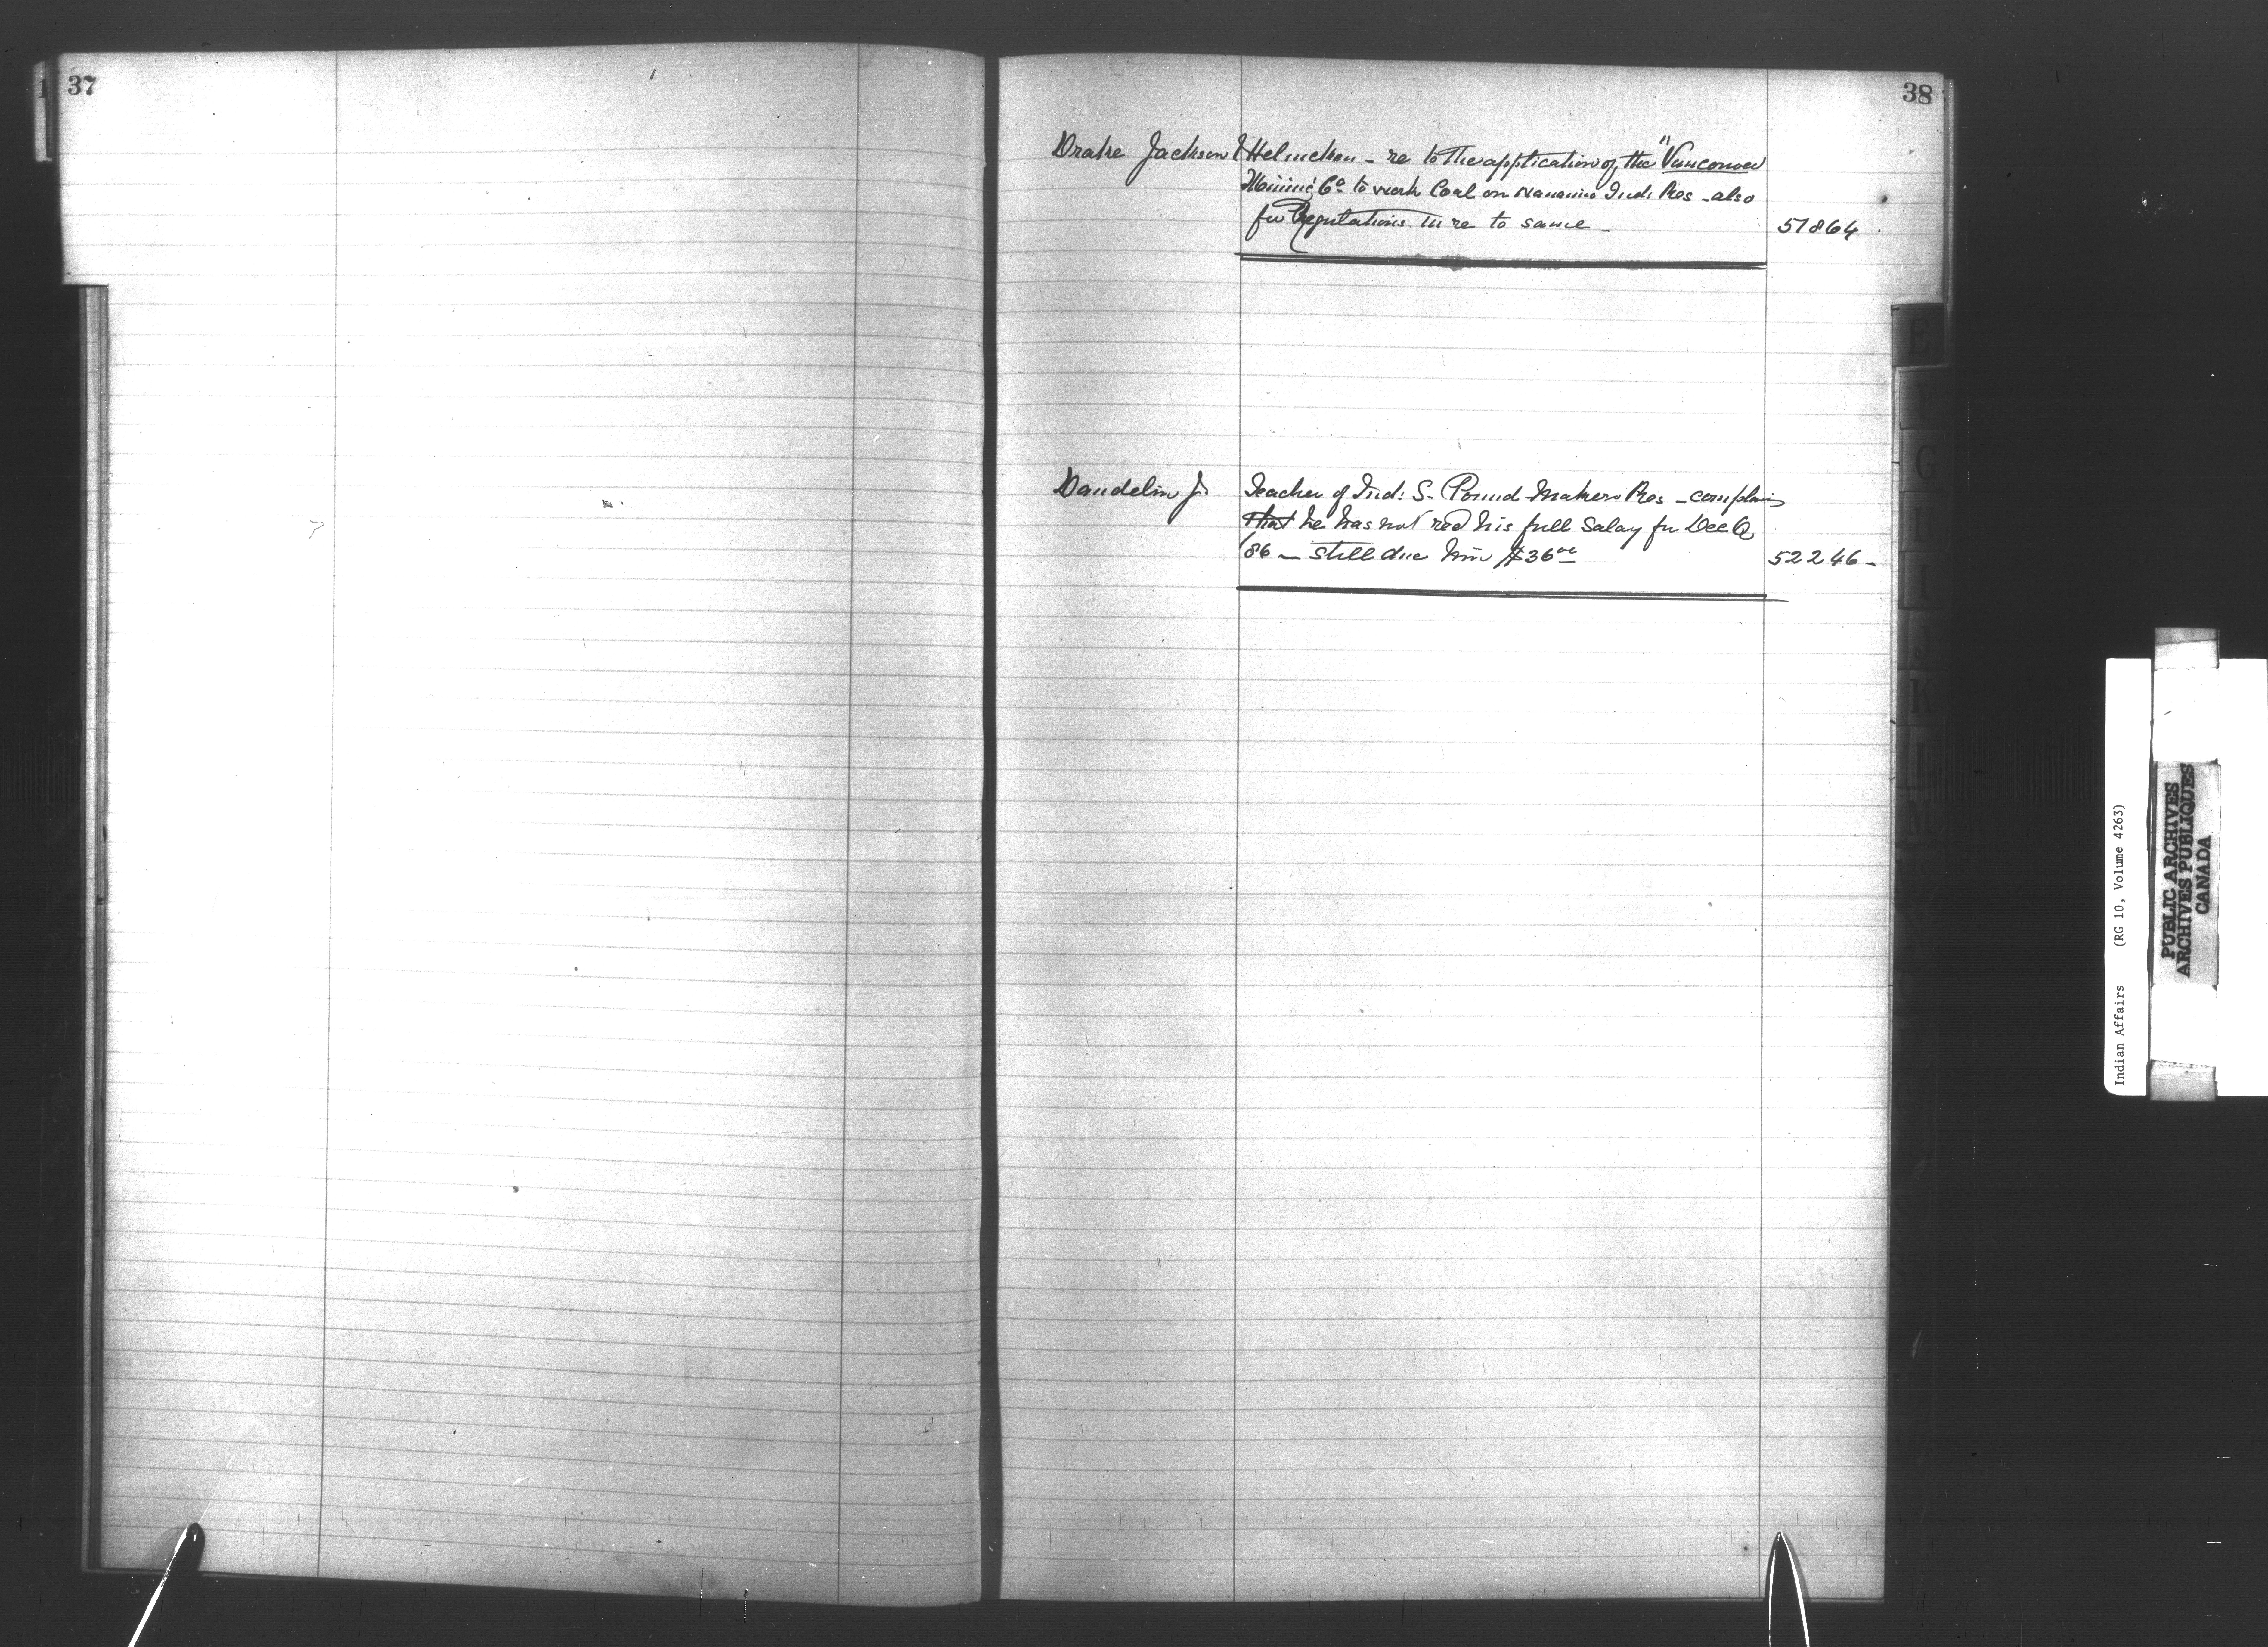 37
38
Drake Jackson & Helmcken - re to the application of the "Vancouver
Mining Co. to work Coal on Nanaimo Ind: Res - also
for Regulations in re to same -
51864
Dandelin J.
Teacher of Ind: S. Pound Makers Res - complains
that he has not recd his full Salary for Dec Q
/86 - still due him $36.00
52246 -
E
G
H
I
J
K
L
M
Indian Affairs (RG 10, Volume 4263)
PUBLIC ARCHIVES
ARCHIVES PUBLIQUES
CANADA